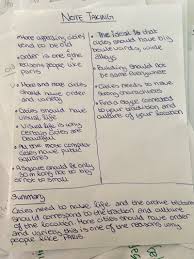 NOTE TAKING
• More appealing cities
tend to be old
• Order is one of the
reasons people like
Paris
• More and more cities
should have order
and variety
• Cities should have
visual life
• Visual life is why
certain cities are
beautiful
• All the most complex
cities have public
squares
• A square should be only
so big
or not to small
• The ideal is that
cities should have big
boulevards, wide
alleys
• Building should not
be same everywhere
• Cities needs to have
strong characters
• Find a style connected
to your location and
culture of your location
Summary
Cities need to have life and the
should correspond to the location and
of the location. More cities should have order
and variety this is one of the reasons why
people like PARIS